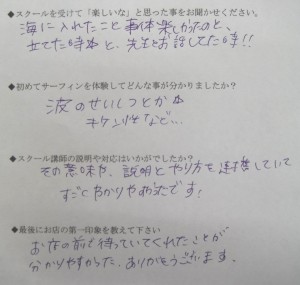 ◆スクールを受けて「楽しいな」と思った事をお聞かせください。
海に入れたこと事体楽しかったのと、
立てた時や、先生とお話してた時!!
◆初めてサーフィンを体験してどんな事が分かりましたか？
波のせいしつとか
キケン性など…
◆スクール講師の説明や対応はいかがでしたか？
その意味や、説明とやり方を連携していて
すごくわかりやすかったです!
◆最後にお店の第一印象を教えて下さい
お店の前で待っていてくれたことが
分かりやすかった。ありがとうございます。